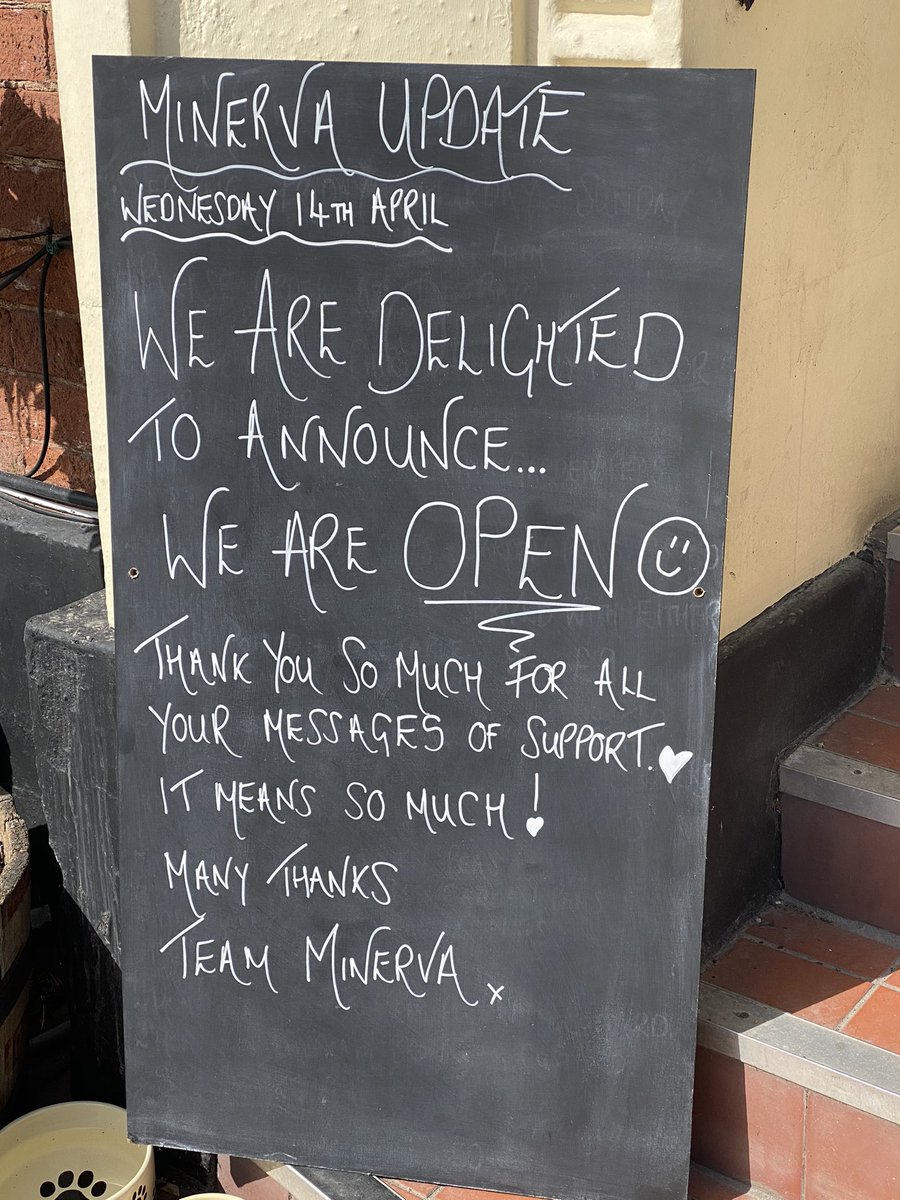 MINERVA UPDATE
WEDNESDAY 14TH APRIL
WE ARE DELIGHTED
TO ANNOUNCE...
WE ARE OPEN
THANK YOU SO MUCH FOR ALL
YOUR MESSAGES OF SUPPORT.
IT MEANS SO MUCH!
MANY THANKS
TEAM MINERVA x